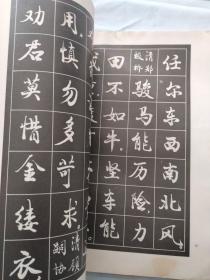 任尔东西南北风。
清郑板桥
骏马能历险，力
田不如牛，坚车能
用，慎勿多苛求。
清顾嗣协
劝君莫惜金缕衣，